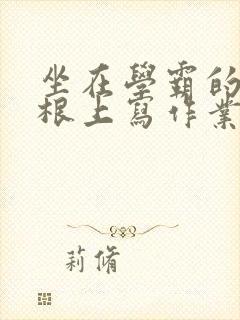 坐在學霸的
根上寫作業
莉脩